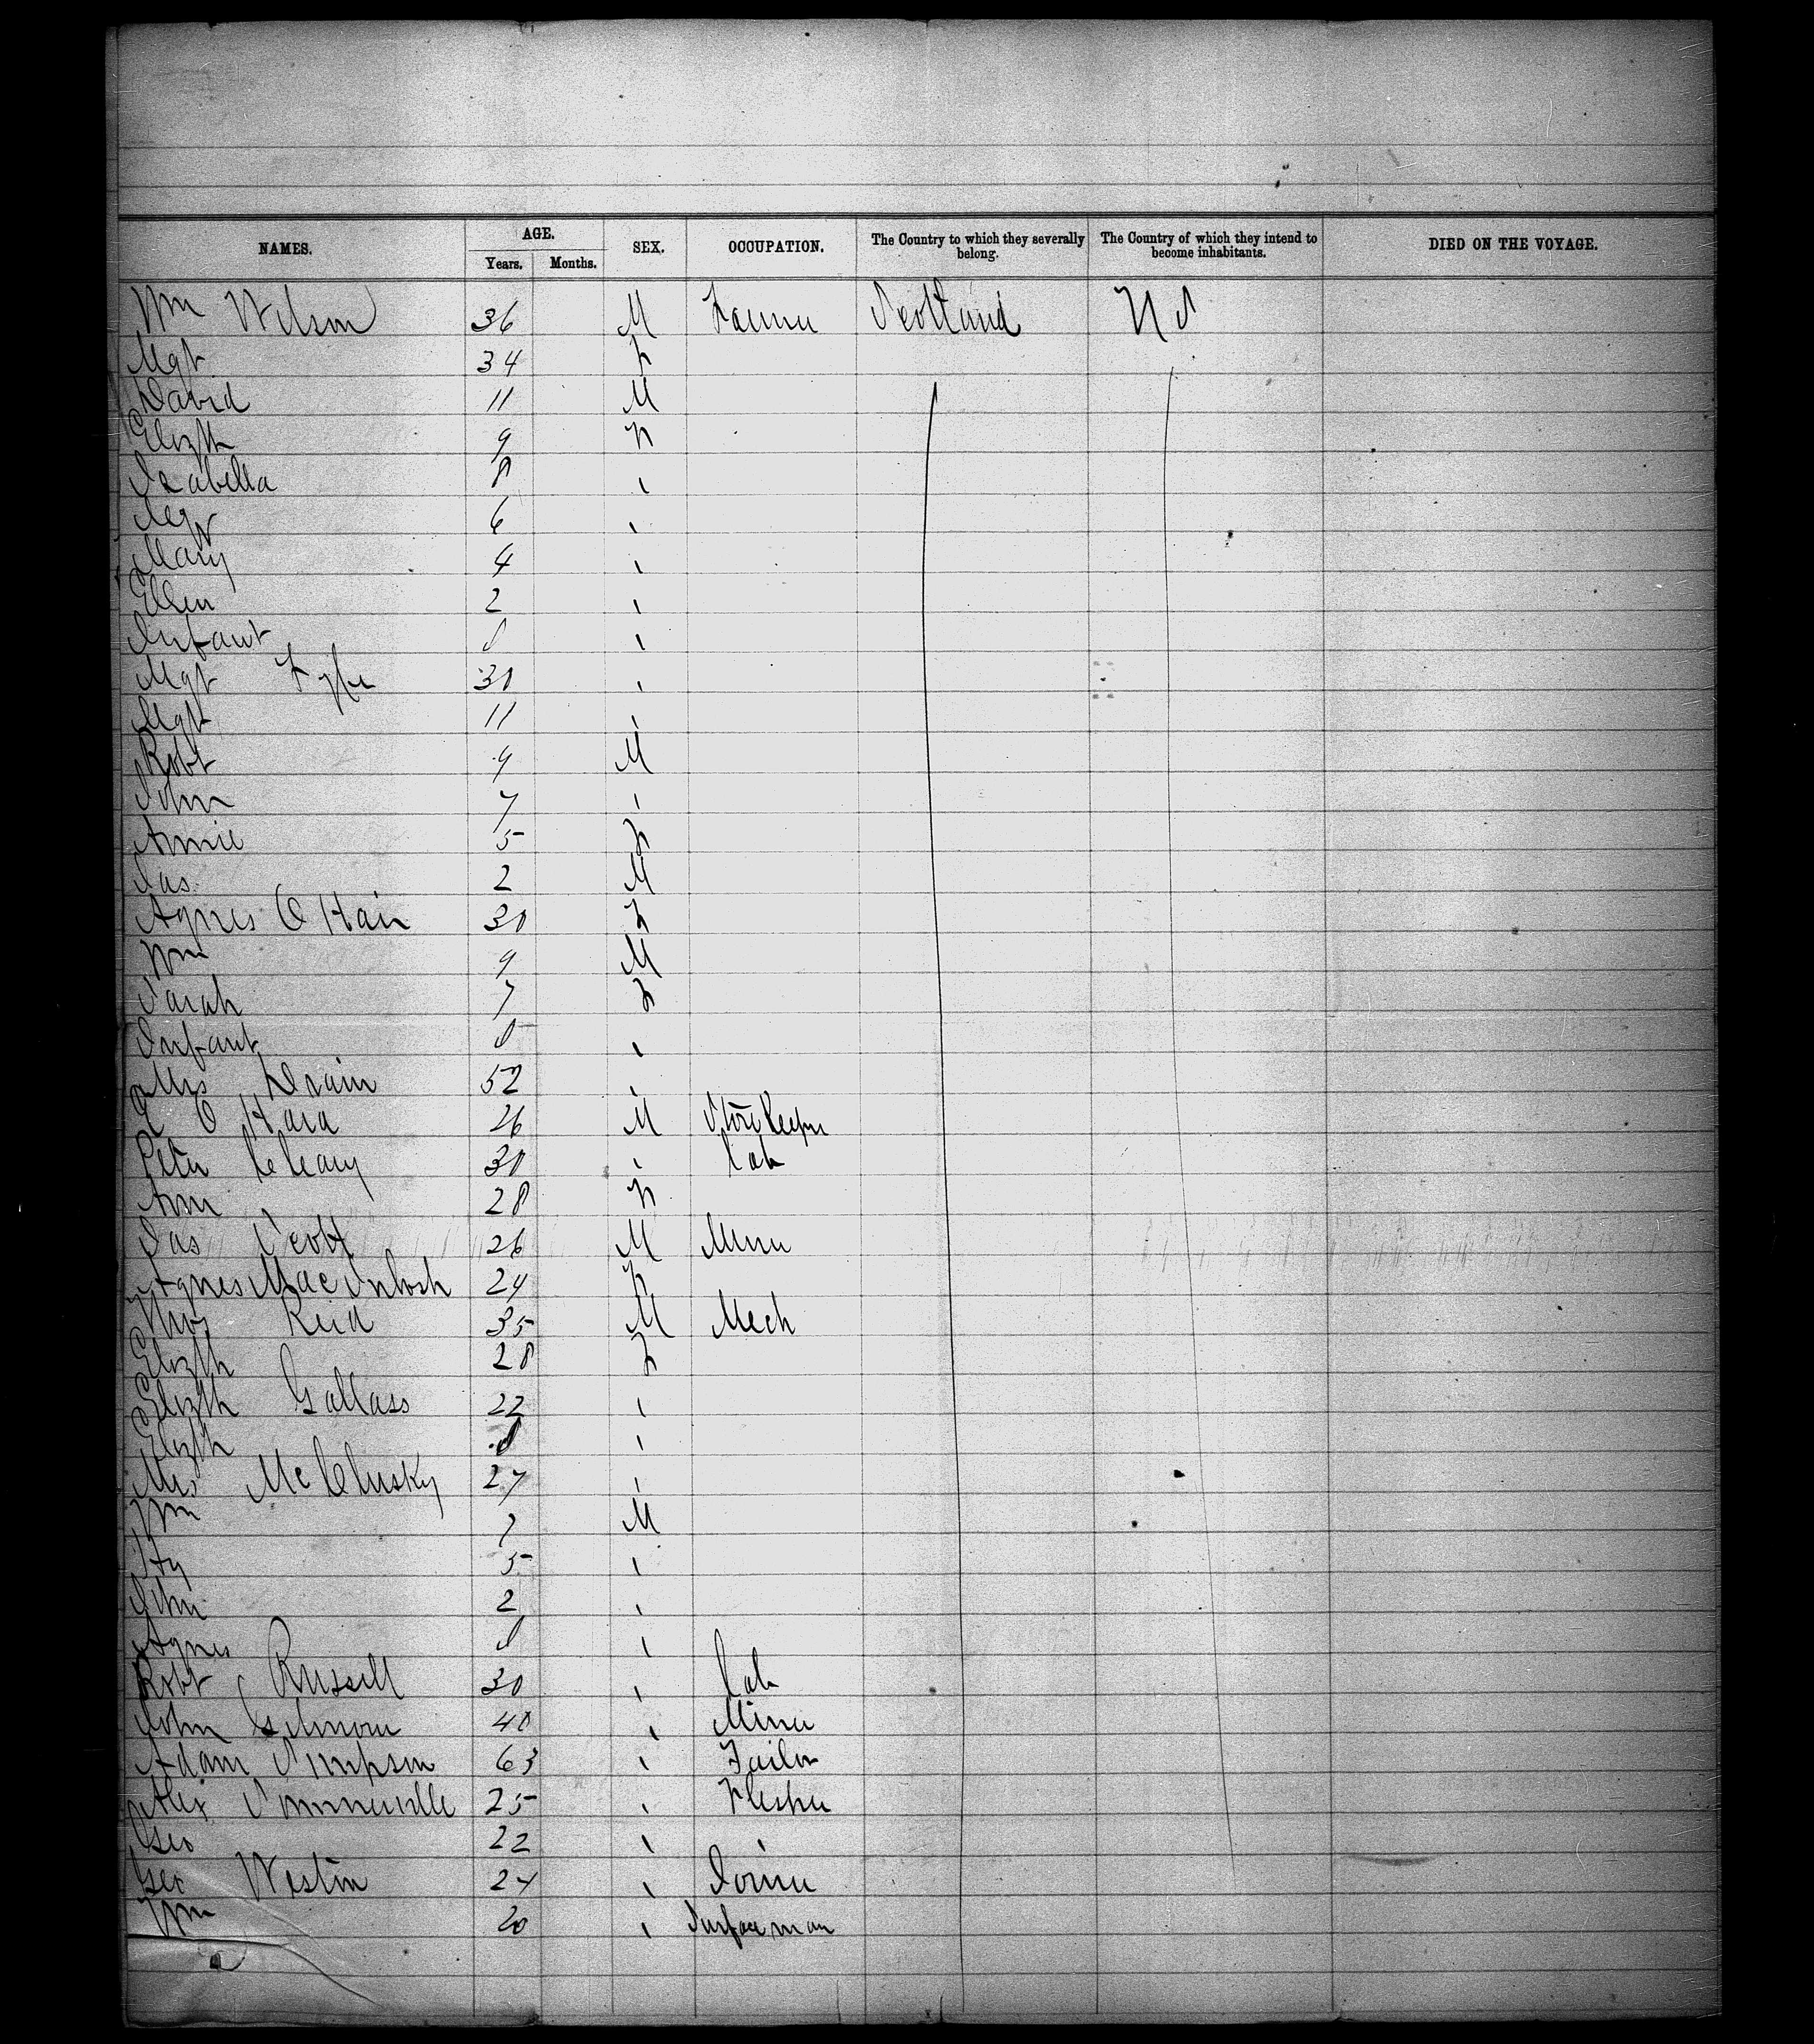 NAMES. AGE. SEX. OCCUPATION. The Country to which they severally belong. The Country of which they intend to become inhabitants. DIED ON THE VOYAGE.
Years. Months.
Wm Wilson 36 M Farmer Scotland US
Mgt 34 F
David 11 M
Elizth 9 F
Isabella 8 "
6 "
Mary 4 "
Ellen 2 "
Infant 0 "
Mgt Fyfe 30 "
Mgt 11 "
Robt 9 M
John 7 "
Annie 5 F
Jas. 2 M
Agnes O Hair 30 F
Wm 9 M
Sarah 7 F
Infant 0 "
Mrs Drain 52 "
O Hara 26 M Storekeeper
Peter 30 " Lab
Ann 28 F
Jas Scott 26 M Miner
Agnes MacIntosh 24 F
Thos Reid 35 M Mech
Elizth 28 F
Elizth Gallass 22 "
Elizth 0 "
Mrs McClusky 27 "
Wm 7 M
Hy 5 "
John 2 "
Agnes 0 "
Robt Russell 30 " Lab
John Gilmour 40 " Miner
Adam Simpson 63 " Tailor
Alex Sommerville 25 " Flesher
Geo 22 " "
Geo Westin 24 " Joiner
Wm 20 " Surfaceman